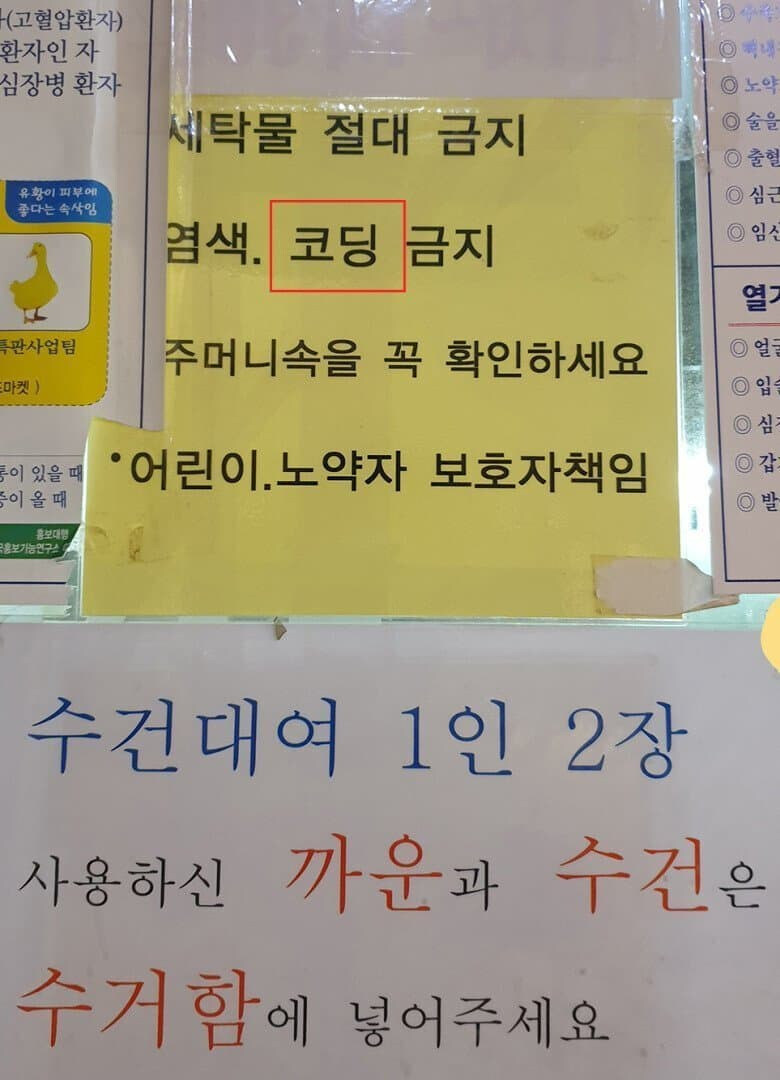 (고혈압환자)
환자인 자
심장병 환자
유황이 피부에
좋다는 속삭임
특판사업팀
마켓 )
통이 있을 때
증이 올 때
홍보대행
국홍보기능연구소
세탁물 절대 금지
염색. 코딩 금지
주머니속을 꼭 확인하세요
•어린이.노약자 보호자책임
◎
◎
◎ 노약
◎ 술을
◎ 출혈
◎ 심근
◎ 임신
열기
◎ 얼굴
◎ 입술
◎ 심장
◎ 갑
◎ 발
수건대여 1인 2장
사용하신 까운과 수건은
수거함에 넣어주세요